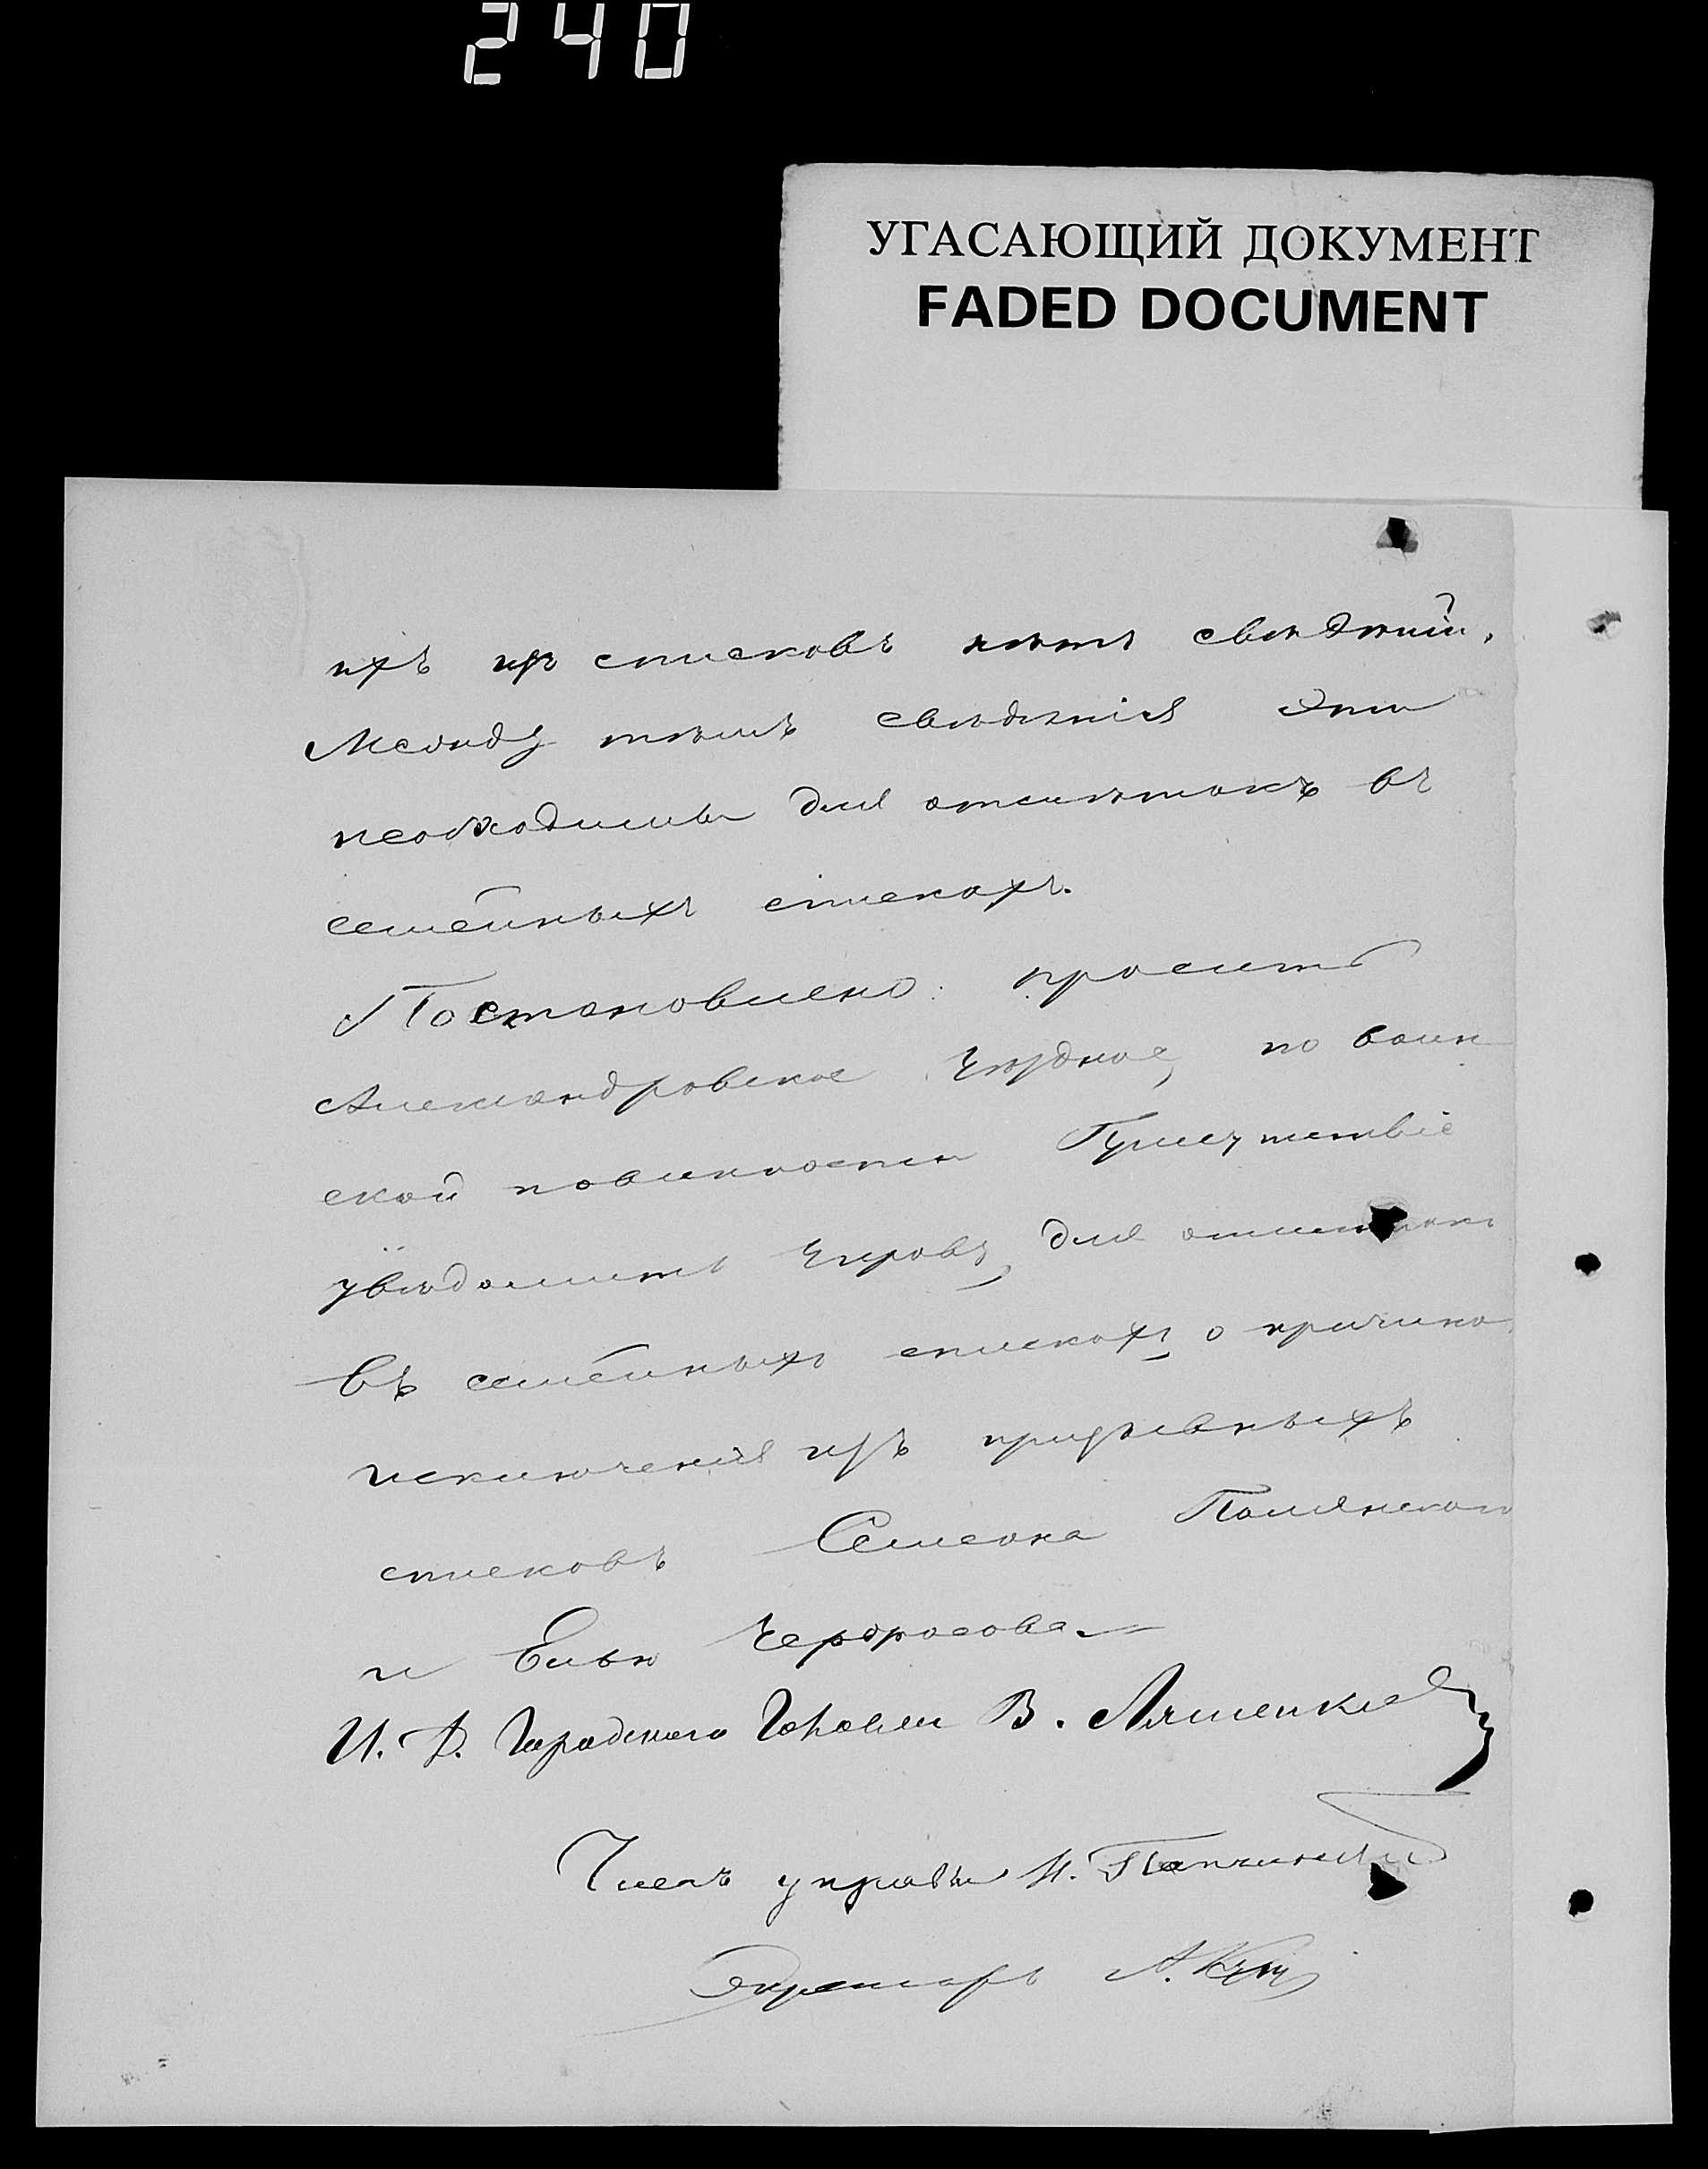 240
УГАСАЮЩИЙ ДОКУМЕНТ
FADED DOCUMENT
ихъ изъ списковъ нѣтъ свѣдѣній,
Между тѣмъ свѣдѣнія эти
необходимы для отмѣтокъ въ
семейныхъ спискахъ.
Постановлено: просить
Александровское Уѣздное по воин
ской повинности Присутствіе
увѣдомить Управу, для отмѣтокъ
въ семейныхъ спискахъ о причинѣ
исключенія изъ призывныхъ
списковъ Симеона Полянскаго
и
И. Д. Городского Головы В. Ляшенко
Членъ управы И.
Секретарь А.